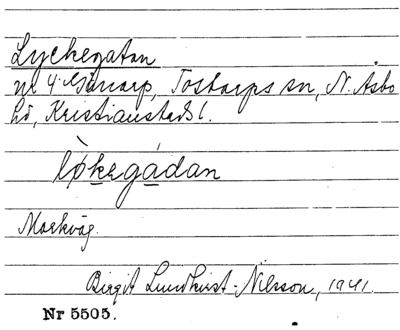 Lyckegatan
nr 4 Gånarp, Tostarps sn, N. Åsbo
hd, Kristianstads l.
lø̀kegádan
Markväg.
Birgit Lundkvist-Nilsson, 1941.
Nr 5505.